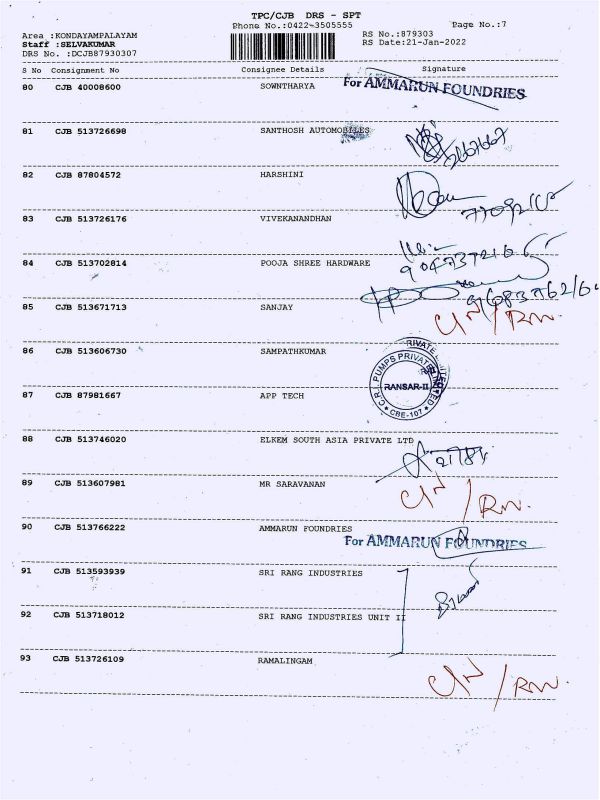 TPC/CJB DRS - SPT
Phone No.:0422-3505555 Page No.:7
Area :KONDAYAMPALAYAM RS No.:879303
Staff :SELVAKUMAR RS Date:21-Jan-2022
DRS No. :DCJB87930307
S No Consignment No Consignee Details Signature
80 CJB 40008600 SOWNTHARYA For AMMARUN FOUNDRIES
81 CJB 513726698 SANTHOSH AUTOMOBILES
82 CJB 87804572 HARSHINI
83 CJB 513726176 VIVEKANANDHAN
84 CJB 513702814 POOJA SHREE HARDWARE
85 CJB 513671713 SANJAY
86 CJB 513606730 SAMPATHKUMAR
C.R.I. PUMPS PRIVATE LIMITED
RANSAR-II
* CBE-107 *
87 CJB 87981667 APP TECH
88 CJB 513746020 ELKEM SOUTH ASIA PRIVATE LTD
89 CJB 513607981 MR SARAVANAN
90 CJB 513766222 AMMARUN FOUNDRIES
For AMMARUN FOUNDRIES
91 CJB 513593939 SRI RANG INDUSTRIES
92 CJB 513718012 SRI RANG INDUSTRIES UNIT II
93 CJB 513726109 RAMALINGAM